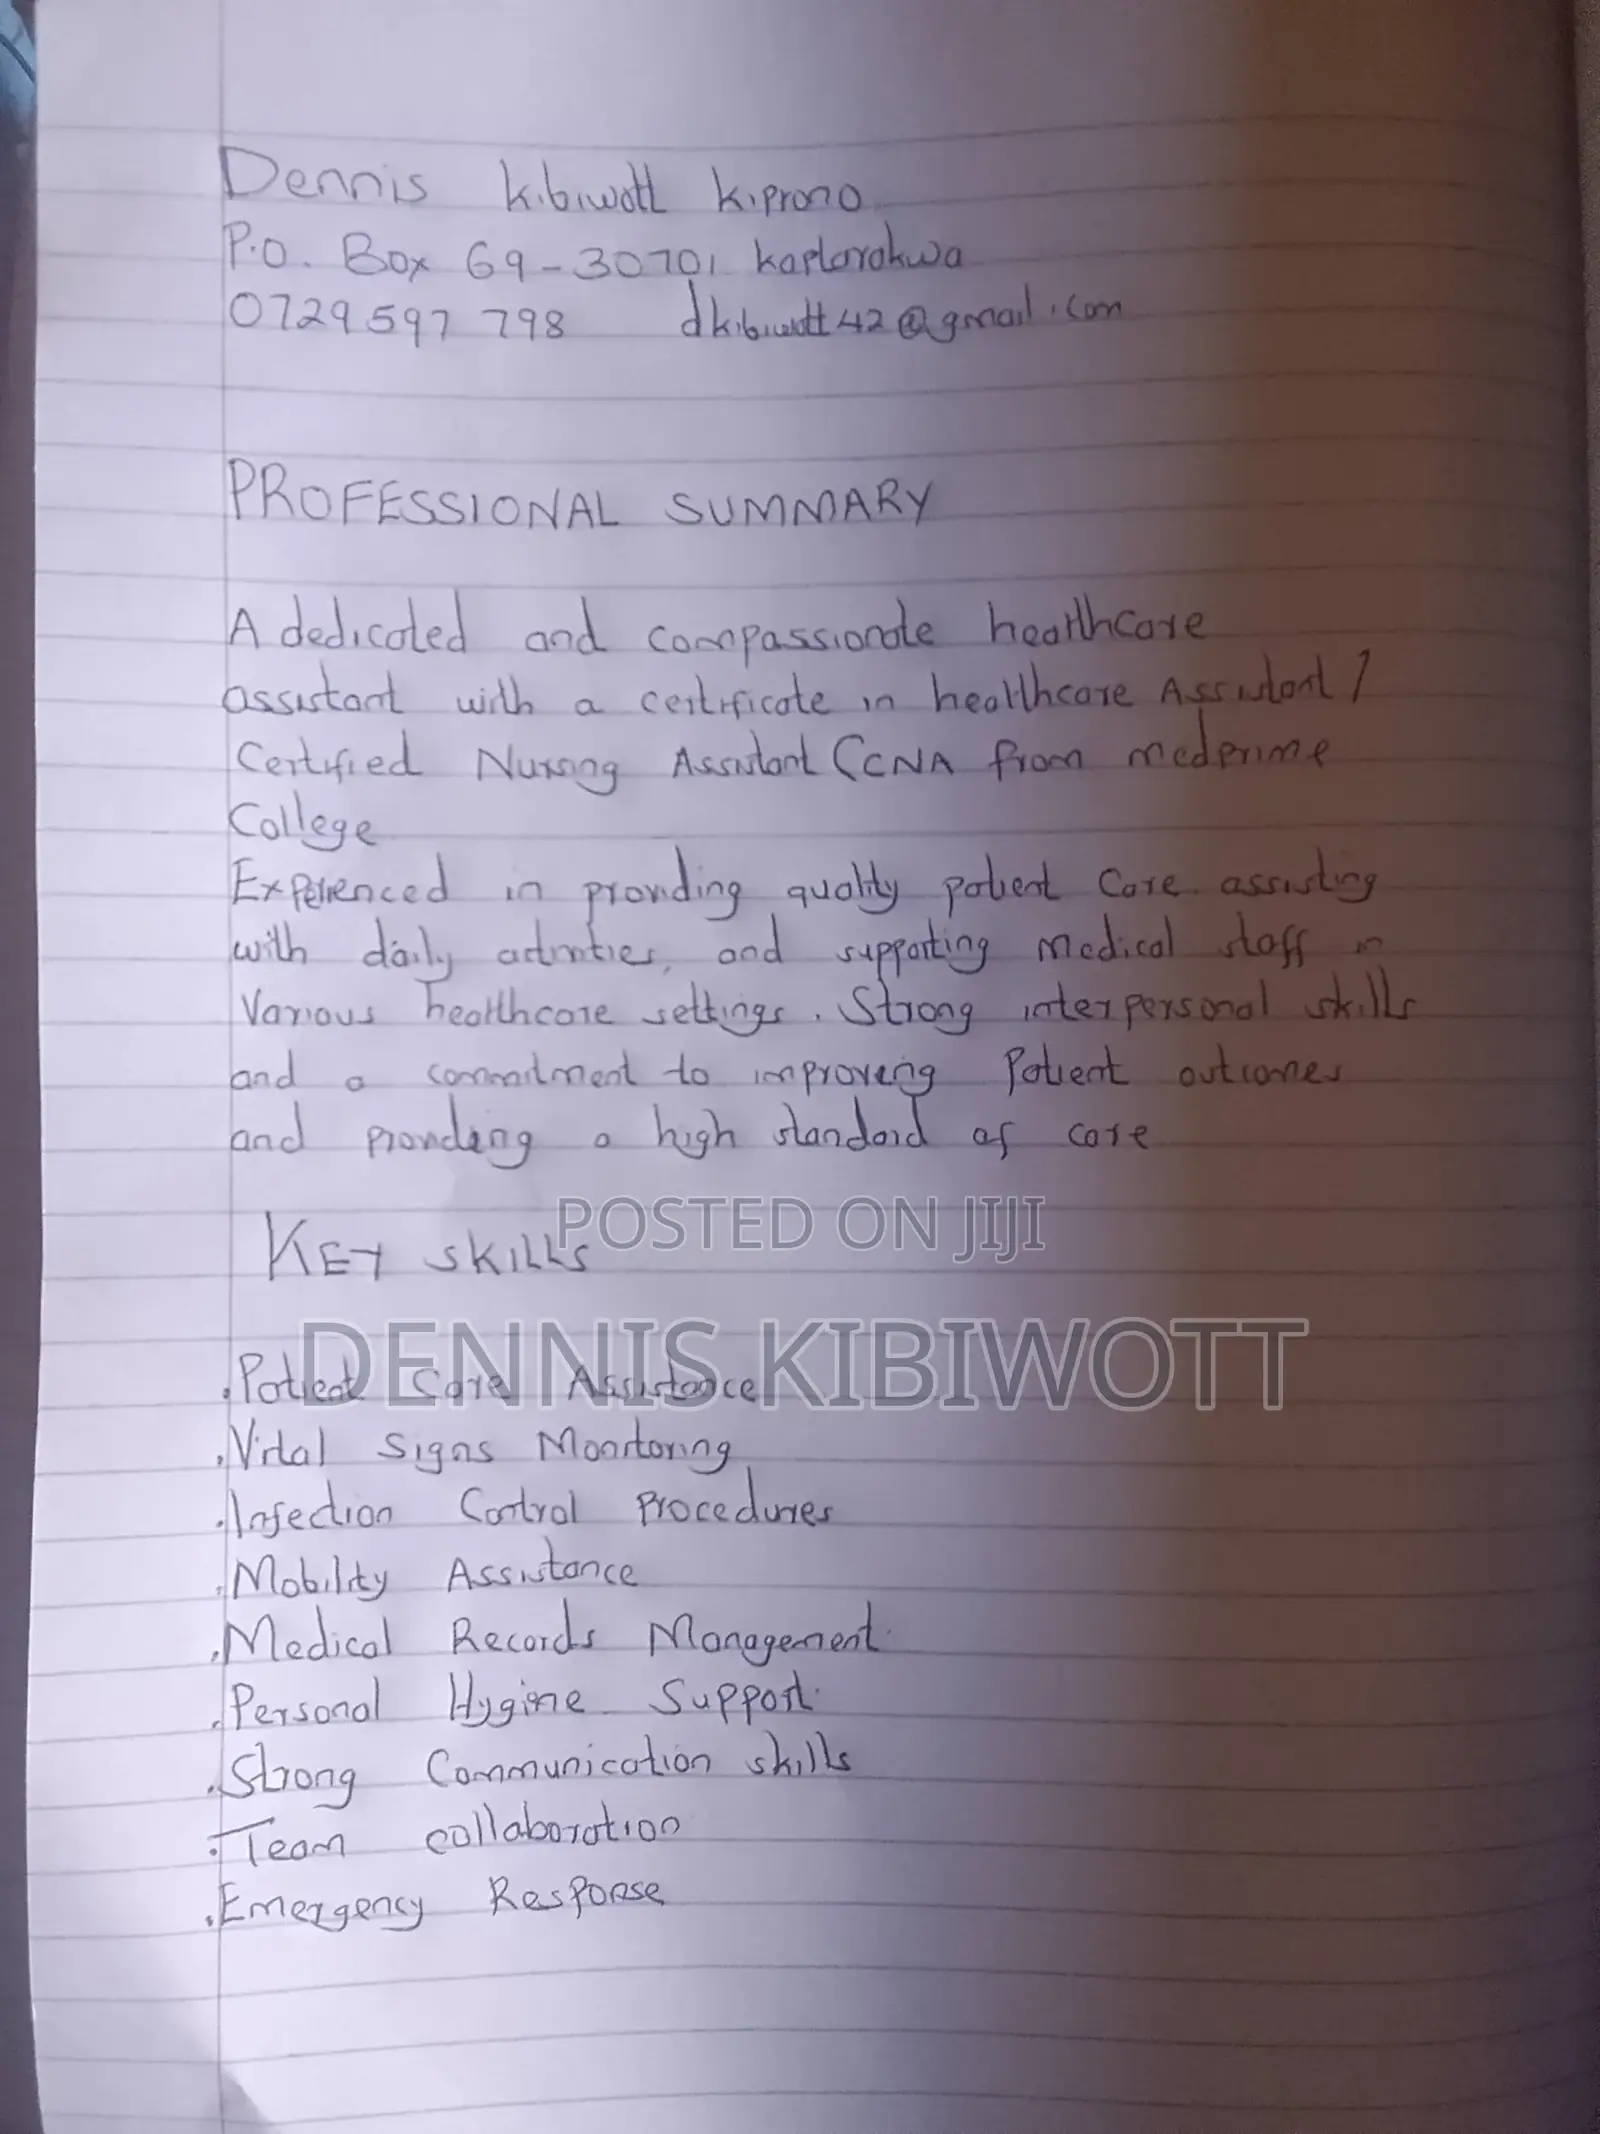 Dennis Kibiwott Kiprono
P.O. Box 69-30701 Kaptarakwa
0729 597 798 dkibiwott42@gmail.com
PROFESSIONAL SUMMARY
A dedicated and compassionate healthcare
assistant with a certificate in healthcare Assistant /
Certified Nursing Assistant (CNA from medprime
College
Experienced in providing quality patient Care assisting
with daily activities, and supporting Medical staff in
Various healthcare settings. Strong interpersonal skills
and a commitment to improving Patient outcomes
and providing a high standard of care
POSTED ON JIJI
KEY SKILLS
DENNIS KIBIWOTT
. Patient Care Assistance
. Vital Signs Monitoring
. Infection Control Procedures
. Mobility Assistance
. Medical Records Management.
. Personal Hygine Support.
. Strong Communication skills
. Team collaboration
. Emergency Response